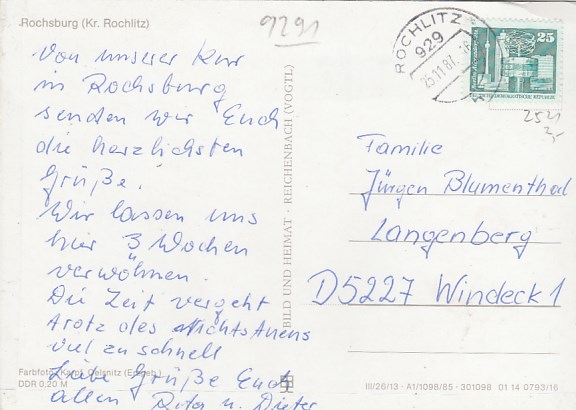 Rochsburg (Kr. Rochlitz)
9291
ROCHLITZ
929
25.11.87
25
DEUTSCHE DEMOKRATISCHE REPUBLIK
2521
3,-
Von unserer Kur
in Rochsburg
senden wir Euch
die herzlichsten
Grüße!
Wir lassen uns
hier 3 Wochen
verwöhnen.
Die Zeit vergeht
trotz des Nichtstuens
viel zu schnell
Liebe Grüße Euch
allen Rita u. Dieter
BILD UND HEIMAT · REICHENBACH (VOGTL)
Familie
Jürgen Blumenthal
Langenberg
D5227 Windeck 1
Farbfoto: Oelsnitz (Erzgeb.)
DDR 0,20 M
III/26/13 · A1/1098/85 · 301098 01 14 0793/16